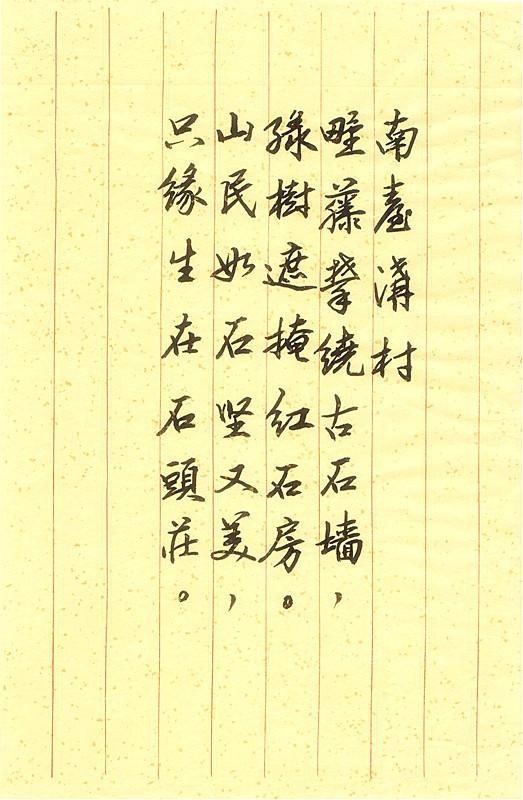 南臺溝村
野藤攀繞古石墙，
綠樹遮掩紅石房。
山民如石坚又美，
只緣生在石頭莊。